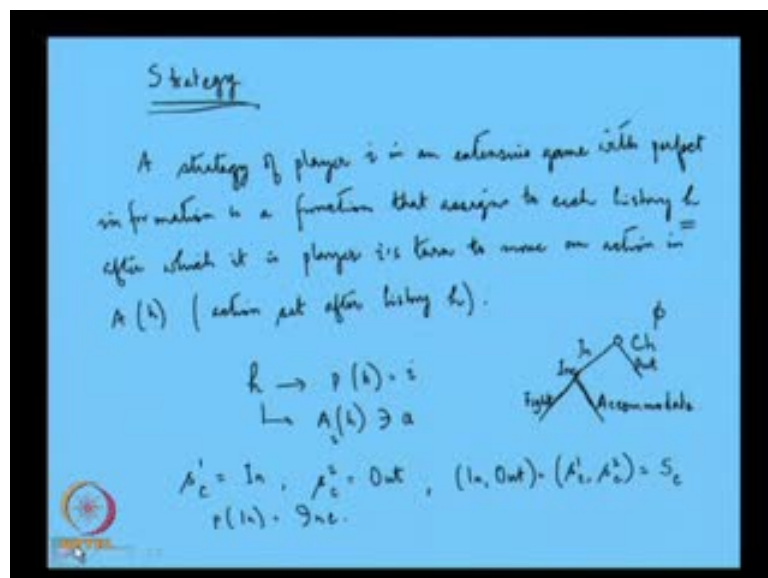 Strategy
A strategy of player i in an extensive game with perfect
information is a function that assigns to each history h
after which it is player i's turn to move an action in
A(h) (action set after history h).
h → p(h) = i
↳ A(h) ∋ a
φ
Ch
In
Out
Inc
Fight
Accommodate
s_c^1 = In, s_c^2 = Out, (In, Out) = (s_c^1, s_c^2) = S_c
p(In) = Inc.
NPTEL